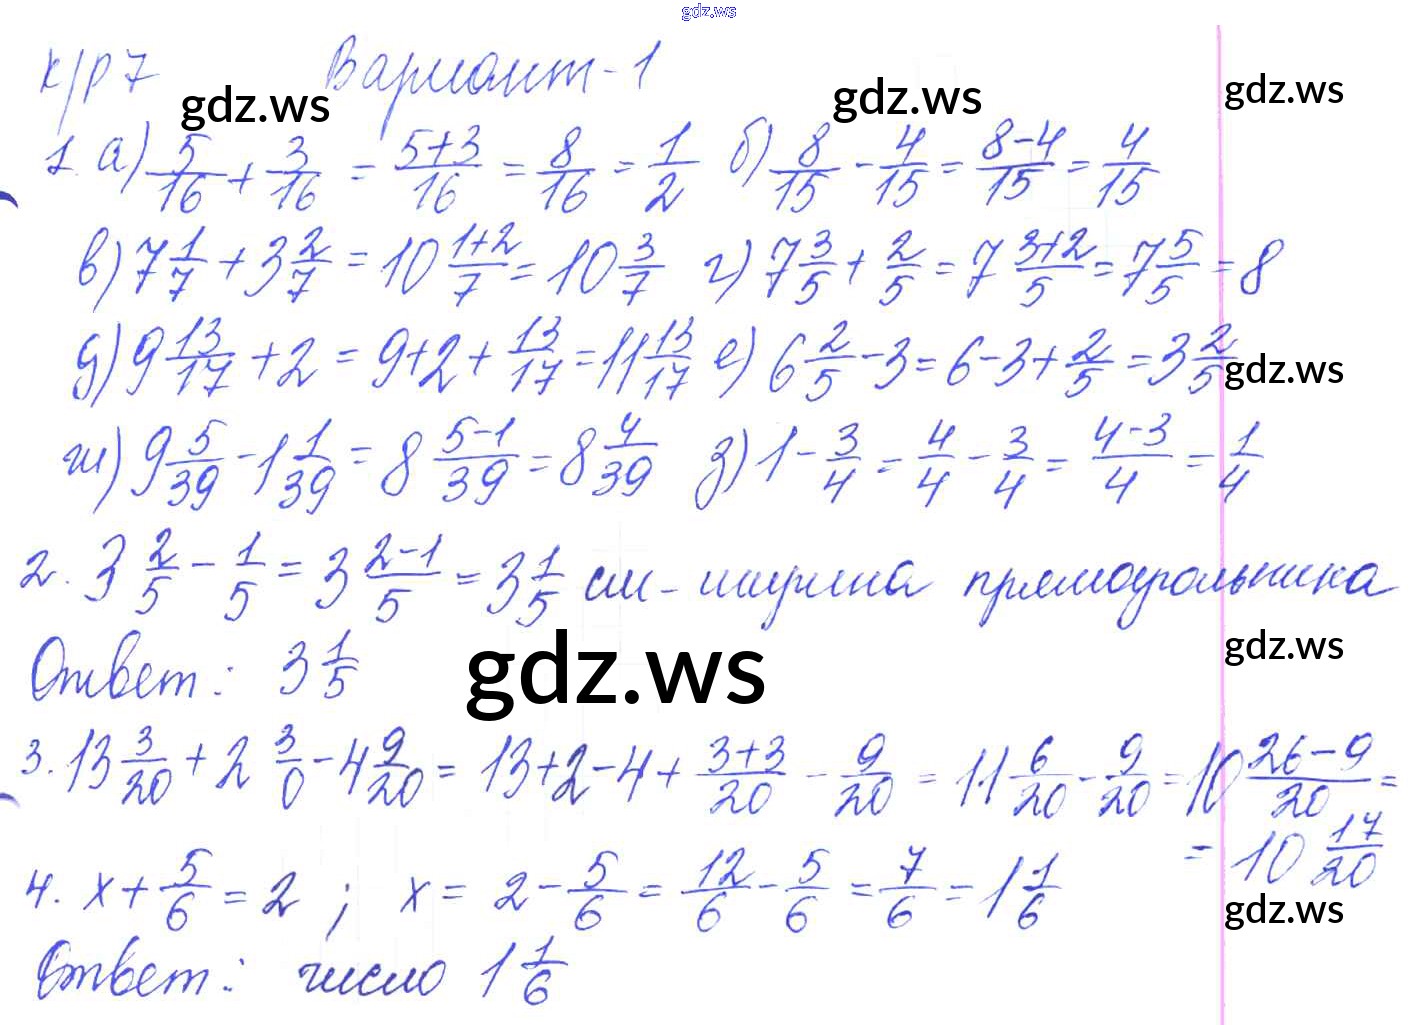 gdz.ws
к/р 7 Вариант-1
gdz.ws gdz.ws gdz.ws
1. а) 5/16 + 3/16 = (5+3)/16 = 8/16 = 1/2 б) 8/15 - 4/15 = (8-4)/15 = 4/15
в) 7 1/7 + 3 2/7 = 10 (1+2)/7 = 10 3/7 г) 7 3/5 + 2/5 = 7 (3+2)/5 = 7 5/5 = 8
д) 9 13/17 + 2 = 9+2+ 13/17 = 11 13/17 е) 6 2/5 - 3 = 6-3+ 2/5 = 3 2/5
gdz.ws
ж) 9 5/39 - 1 1/39 = 8 (5-1)/39 = 8 4/39 з) 1 - 3/4 = 4/4 - 3/4 = (4-3)/4 = 1/4
2. 3 2/5 - 1/5 = 3 (2-1)/5 = 3 1/5 см - ширина прямоугольника
Ответ: 3 1/5
gdz.ws gdz.ws
3. 13 3/20 + 2 3/0 - 4 9/20 = 13+2-4+ (3+3)/20 - 9/20 = 11 6/20 - 9/20 = 10 (26-9)/20 =
= 10 17/20
4. x + 5/6 = 2 ; x = 2 - 5/6 = 12/6 - 5/6 = 7/6 = 1 1/6
gdz.ws
Ответ: число 1 1/6